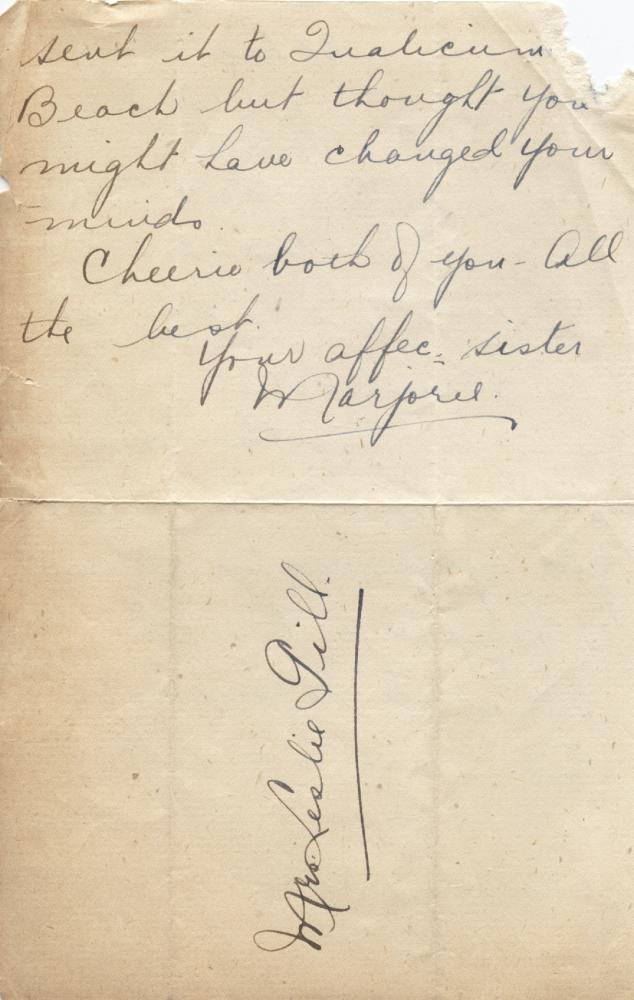 sent it to Qualicum
Beach but thought you
might have changed your
minds.
Cheerio both of you - All
the best.
Your affec. sister
Marjorie.
Mrs Leslie Gill.